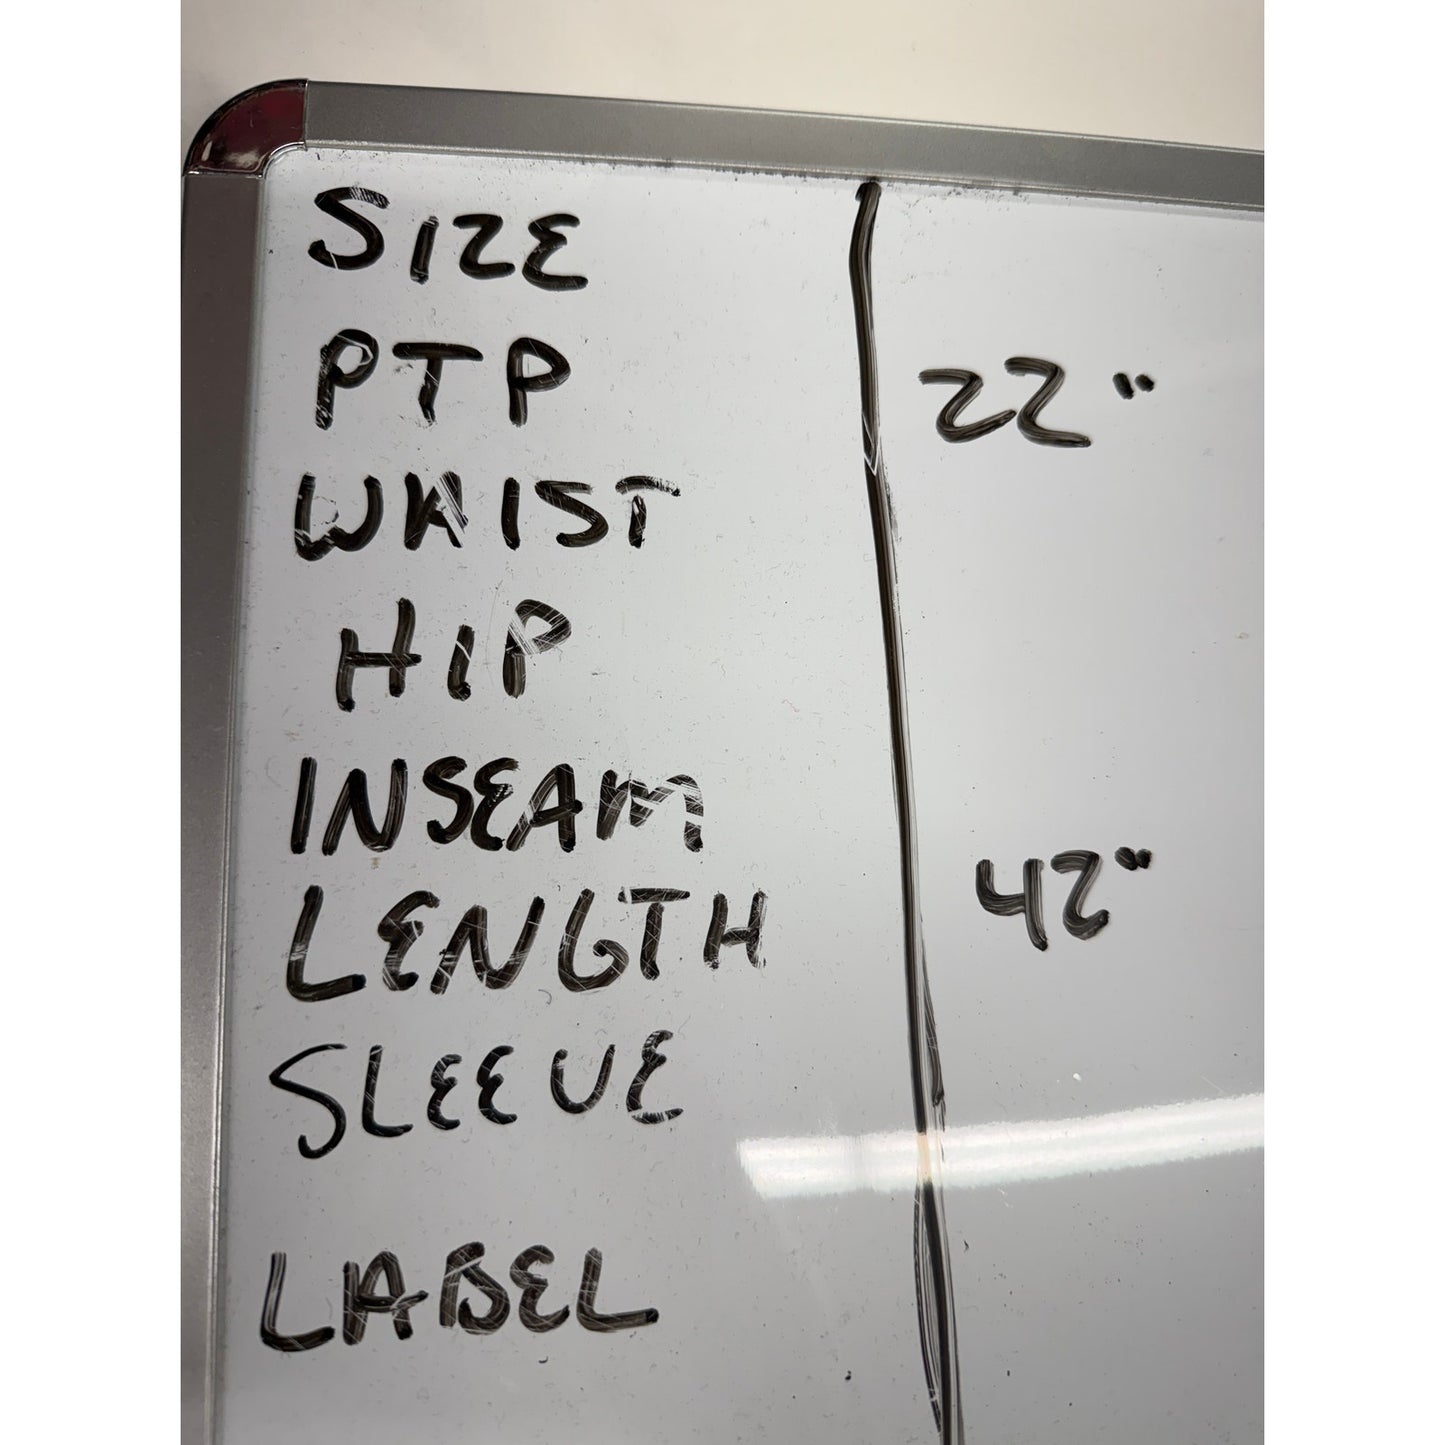 SIZE
PTP 22"
WAIST
HIP
INSEAM
LENGTH 42"
SLEEVE
LABEL